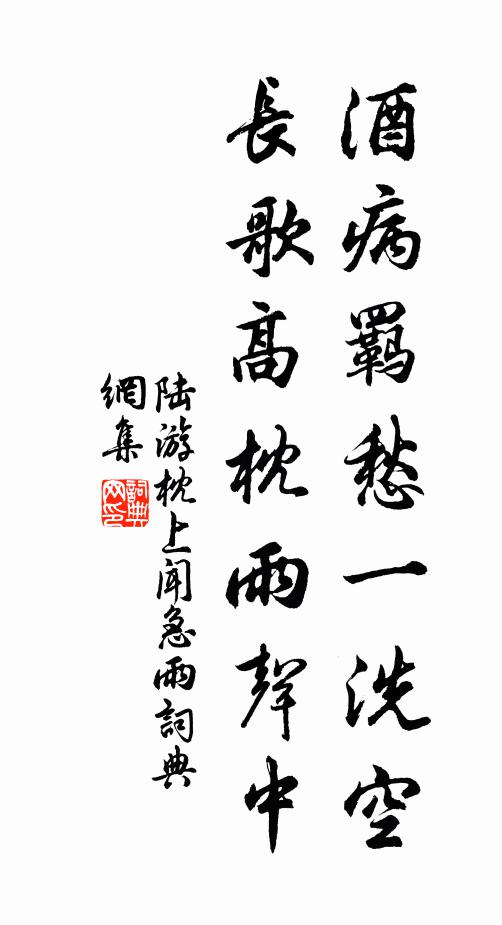 酒病羈愁一洗空
長歌高枕雨聲中
陸游枕上聞急雨詞典
網集
詞典
网印